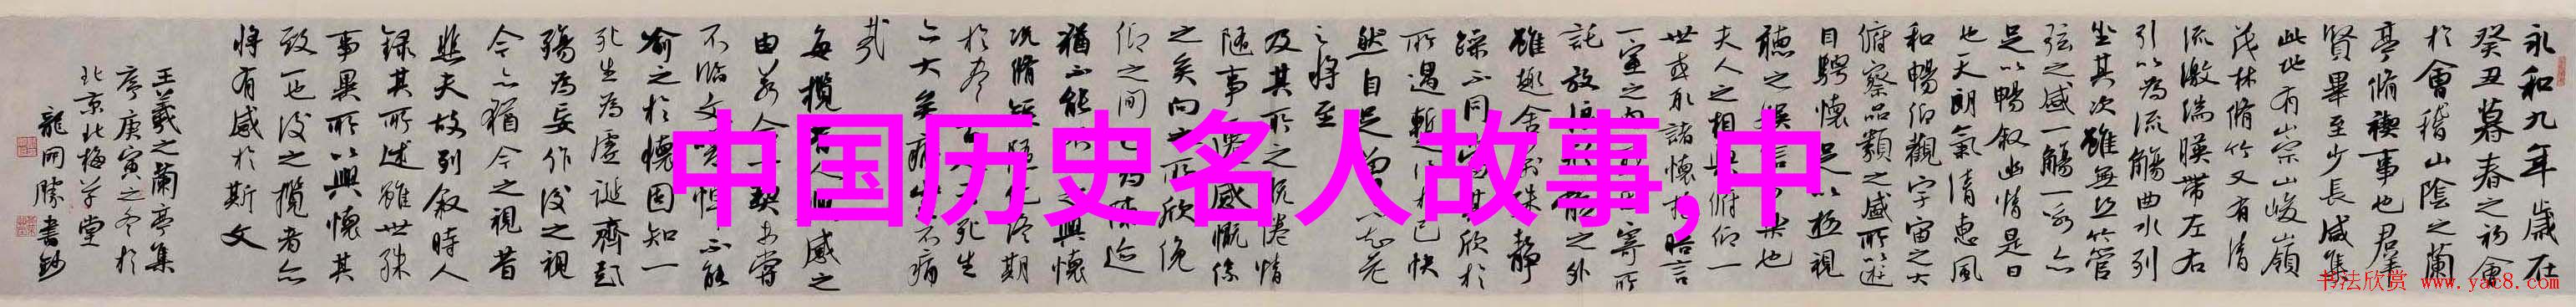 永和九年歲在
癸丑暮春之初會
於會稽山陰之蘭
亭脩禊事也群
賢畢至少長咸集
此地有崇山峻嶺
茂林脩竹又有清
流激湍暎帶左右
引以為流觴曲水列
坐其次雖無絲竹管
弦之盛一觴一詠亦
足以暢叙幽情是日
也天朗氣清惠風
和暢仰觀宇宙之大
俯察品類之盛所以遊
目騁懷足以極視
聽之娛信可樂也
夫人之相與俯仰一
世或取諸懷抱晤言
一室之內 寄所
託放浪形骸之外
雖趣舍萬殊靜
躁不同當其欣於
所遇蹔得於己快
然自足曾不知老
之將至
及其所之既倦情
隨事遷感慨係
之矣向之所欣俛
仰之間已為陳迹
猶不能不以之興懷
況脩短隨化終期
於盡古 死生
亦大矣豈不痛
哉
每攬昔人興感之
由若合一契未嘗
不臨文嗟悼不能
喻之於懷固知一
死生為虛誕齊彭
殤為妄作後之視
今亦猶今之視昔
悲夫故列叙時人
錄其所述雖世殊
事異所以興懷其
致一也後之攬者亦
將有感於斯文
王羲之蘭亭集
序庚寅之冬於
北京北梅草堂
龍開勝書鈔
中国历史名人故事,中
书法欣赏 www.yac8.com